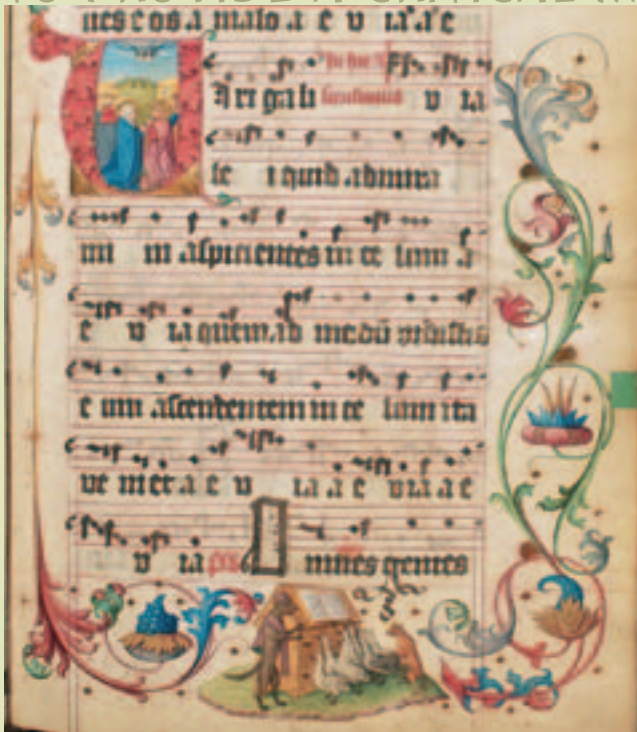 nes e os a malo a e v ia a e
V iri gali
le i quid admira
mi ni aspicientes in ce lum a
e v ia quemad modū vidistis
e um ascendentem in ce lum ita
ve niet a e v ia a e v ia a e
v ia ps O mnes gentes